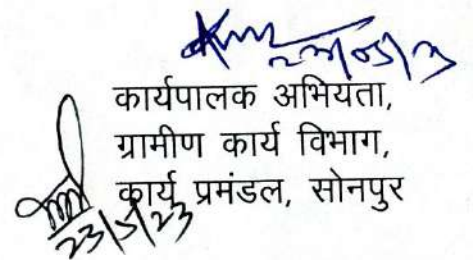 कार्यपालक अभियता,
ग्रामीण कार्य विभाग,
कार्य प्रमंडल, सोनपुर
23/5/23